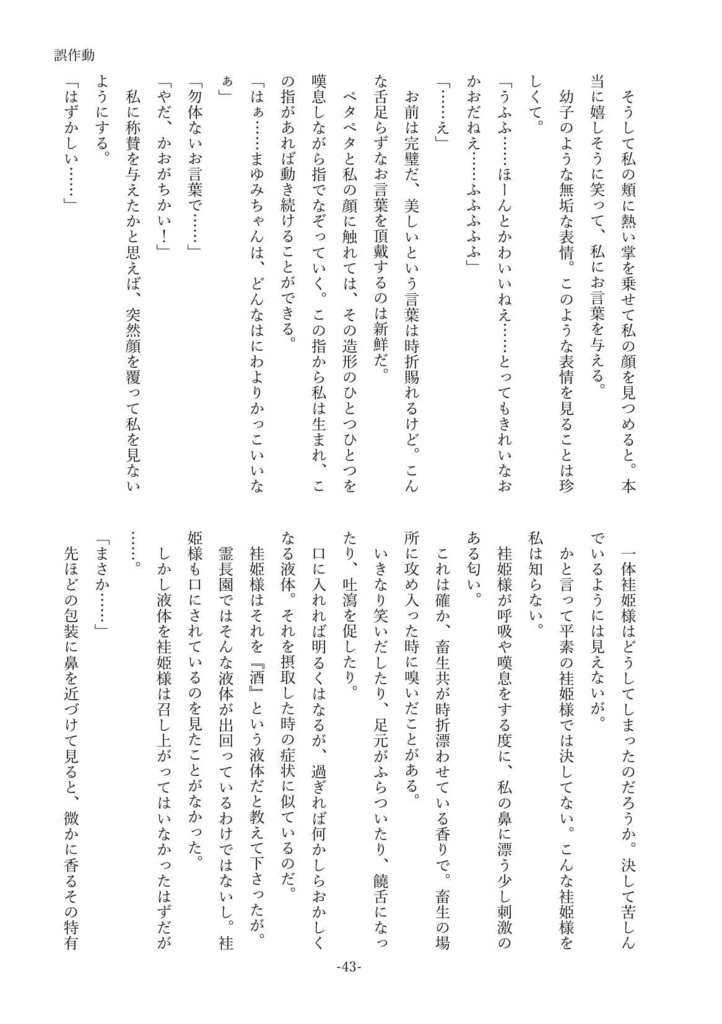 誤作動
　そうして私の頬に熱い掌を乗せて私の顔を見つめると。本
当に嬉しそうに笑って、私にお言葉を与える。
　幼子のような無垢な表情。このような表情を見ることは珍
しくて。
「うふふ……ほーんとかわいいねえ……とってもきれいなお
かおだねえ……ふふふふふ」
「……え」
　お前は完璧だ、美しいという言葉は時折賜れるけど。こん
な舌足らずなお言葉を頂戴するのは新鮮だ。
　ペタペタと私の顔に触れては、その造形のひとつひとつを
嘆息しながら指でなぞっていく。この指から私は生まれ、こ
の指があれば動き続けることができる。
「はぁ……まゆみちゃんは、どんなはにわよりかっこいいな
ぁ」
「勿体ないお言葉で……」
「やだ、かおがちかい！」
　私に称賛を与えたかと思えば、突然顔を覆って私を見ない
ようにする。
「はずかしい……」
　一体袿姫様はどうしてしまったのだろうか。決して苦しん
でいるようには見えないが。
　かと言って平素の袿姫様では決してない。こんな袿姫様を
私は知らない。
　袿姫様が呼吸や嘆息をする度に、私の鼻に漂う少し刺激の
ある匂い。
　これは確か、畜生共が時折漂わせている香りで。畜生の場
所に攻め入った時に嗅いだことがある。
　いきなり笑いだしたり、足元がふらついたり、饒舌になっ
たり、吐瀉を促したり。
　口に入れれば明るくはなるが、過ぎれば何かしらおかしく
なる液体。それを摂取した時の症状に似ているのだ。
　袿姫様はそれを『酒』という液体だと教えて下さったが。
　霊長園ではそんな液体が出回っているわけではないし。袿
姫様も口にされているのを見たことがなかった。
　しかし液体を袿姫様は召し上がってはいなかったはずだが
……。
「まさか……」
　先ほどの包装に鼻を近づけて見ると、微かに香るその特有
-43-